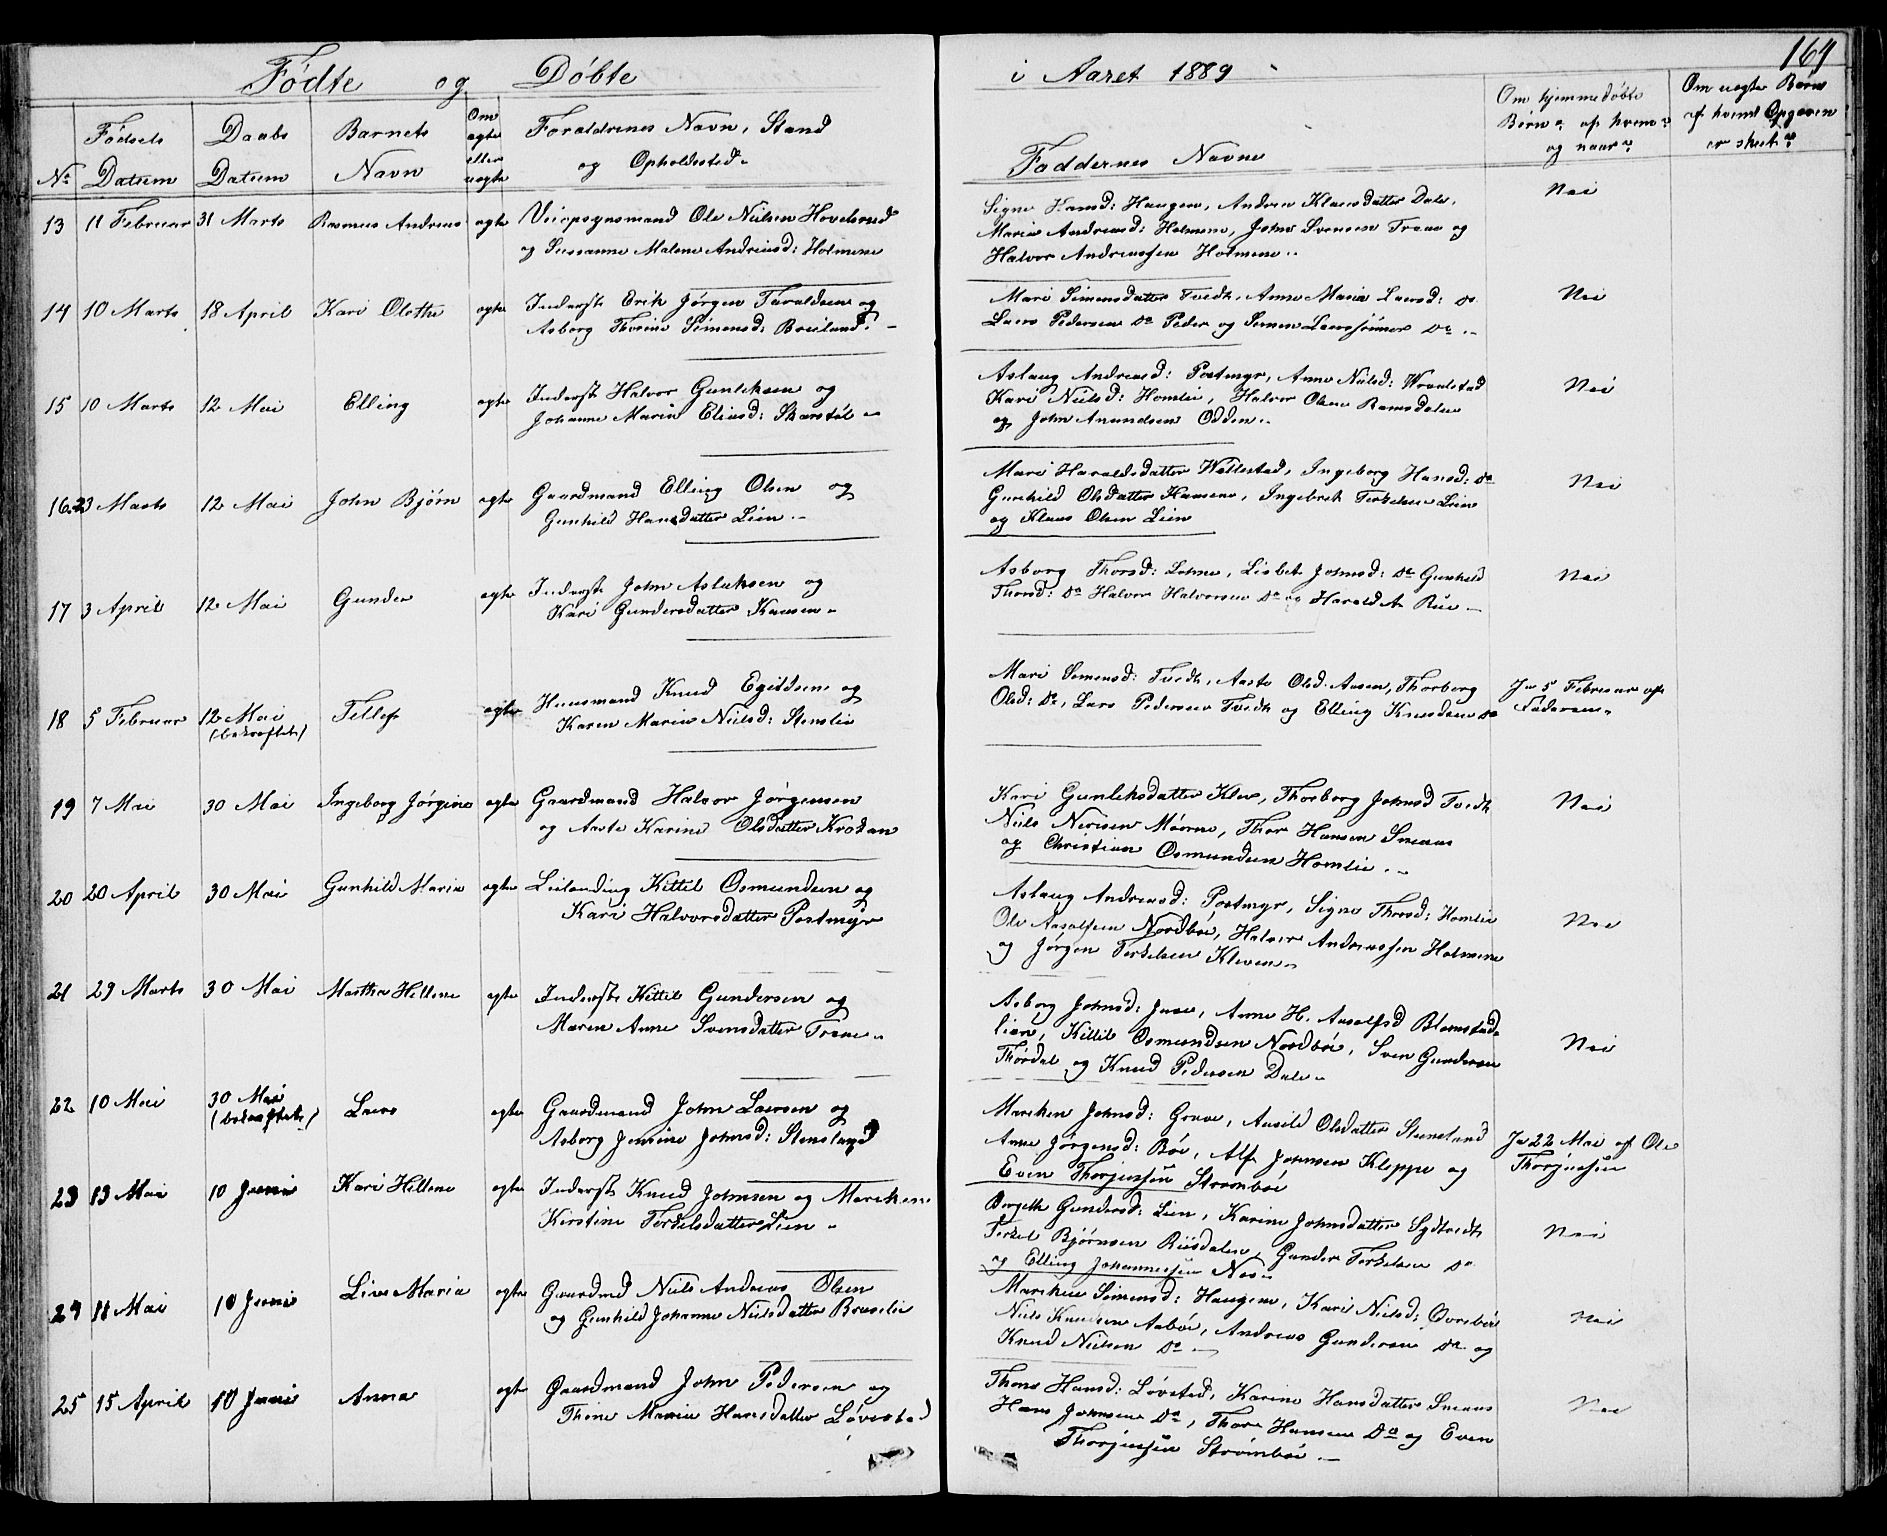 164
Födte og Döbte i Aaret 1889
No
Födsels Datum
Daabs Datum
Barnets Navn
Om ægte eller uægte
Foraldrenes Navn, Stand
og Opholdssted
Faddernes Navne
Om hjemmedöbte
Börn af hvem
og naar
Om uægte Börn
af hvem Opgaven
er skeet
13 11 Februar 31 Marts Rasmus Andreas ægte Ole Nielsen Hovelsrud
og Susanne Malene Andreasd: Holmene
Signe Hansd: Haugen, Andrea Klausdatter Dale,
Maria Andreasd: Holmene, John Svensen Trane og
Halvor Andreassen Holmene
Nei
14 10 Marts 18 April Kari Olethe ægte Inderste Erik Jörgen Taraldsen og
Asborg Thorine Simensd: Breiland
Mari Simensdatter Tvedt, Anne Maria Larsd: Do
Lars Pedersen Do Peder og Larssönner Do
Nei
15 10 Marts 12 Mai Elling ægte Inderste Halvor Gunleksen og
Johanne Maria Eliasd: Skarstöl
Aslaug Andreasd: Postmyr, Anne Nielsd:
Kari Nielsd: Homlie, Halvor Olsen Ramsdalen
og John Anundsen Odden
Nei
16 23 Marts 12 Mai John Björn ægte Gaardmand Elling Olsen og
Gunhild Hansdatter Lien
Mari Haraldsdatter Wallestad, Ingeborg Hansd: Do
Gunhild Olsdatter Kaasene, Ingebret Terkelsen Lien
og Klaus Olsen Lien
Nei
17 3 April 12 Mai Gunder ægte Inderste John Aslaksen og
Kari Gundersdatter Kaasen
Asborg Thorsd: Lohne, Lisbet Johnsd: Do Gunhild
Thorsd: Do Halvor Halvorsen Do og Harald A. Rue
Nei
18 5 Februar 12 Mai
(bekræftet) Tellef ægte Huusmand Knud Egildsen og
Karen Marie Nielsd: Stenslie
Mari Simensd: Tvedt, Aaste Olsd. Aasen, Thorborg
Olsd: Do, Lars Pedersen Tvedt og Elling Knudsen Do
Ja 5 Februar af
Faderen
19 7 Mai 30 Mai Ingeborg Jörgine ægte Gaardmand Halvor Jörgensen
og Aaste Karine Olsdatter Krokan
Kari Gunleksdatter Klev, Thorborg Johnsd Tvedt
Niels Nielsen Möorne, Thor Hansen Smaas
og Christian Osmundsen Homlie
Nei
20 20 April 30 Mai Gunhild Maria ægte Leilænding Kittil Osmundsen og
Kari Halvorsdatter Postmyr
Aslaug Andreasd: Postmyr, Signe Thorsd: Homlie
Ole Aasolfsen Nordböe, Halvor Andreassen Holmene
og Jörgen Terkelsen Kleven
Nei
21 29 Marts 30 Mai Martha Hellene ægte Inderste Kittil Gundersen og
Maren Anne Svensdatter Trane
Asborg Johnsd: Anne H. Aasolfsd Blomstad-
lien, Kittil Osmundsen Nordböe, Sven Gundersen
Thördal og Knud Pedersen Dale
Nei
22 10 Mai 30 Mai
(bekræftet) Lars ægte Gaardmand John Larsen og
Asborg Jensine Johnsd: Stensland
Mareken Johnsd: Grave, Aasild Olsdatter Stensland
Anne Jörgensd: Böe, Alf Johnsen Kleppe og
Even Thorjussen Strömböe
Ja 22 Mai af Ole
Thorjussen
23 13 Mai 10 Juni Kari Hellene ægte Inderste Knud Johnsen og Marekene
Kirstine Terkelsdatter Lien
Bergith Gundersd: Lien, Karine Johnsdatter Sydtvedt
Terkel Björnsen Riisdalen, Gunder Terkelsen Do
og Elling Johannessen Næs
Nei
24 11 Mai 10 Juni Live Maria ægte Gaardmd Niels Andreas Olsen
og Gunhild Johanne Nielsdatter Braslie
Mareken Simensd: Haugene, Kari Nielsd: Ovreböe
Niels Knudsen Aaböe, Andreas Gundersen Do og
Knud Nielsen Do
Nei
25 15 April 10 Juni Anna ægte Gaardmand John Pedersen og
Thine Maria Hansdatter Lövestad
Thone Hansd: Lövstad, Karine Hansdatter Smaas
Hans Johnsen Do, Thor Hansen Do og Even
Thorjussen Strömböe
Nei